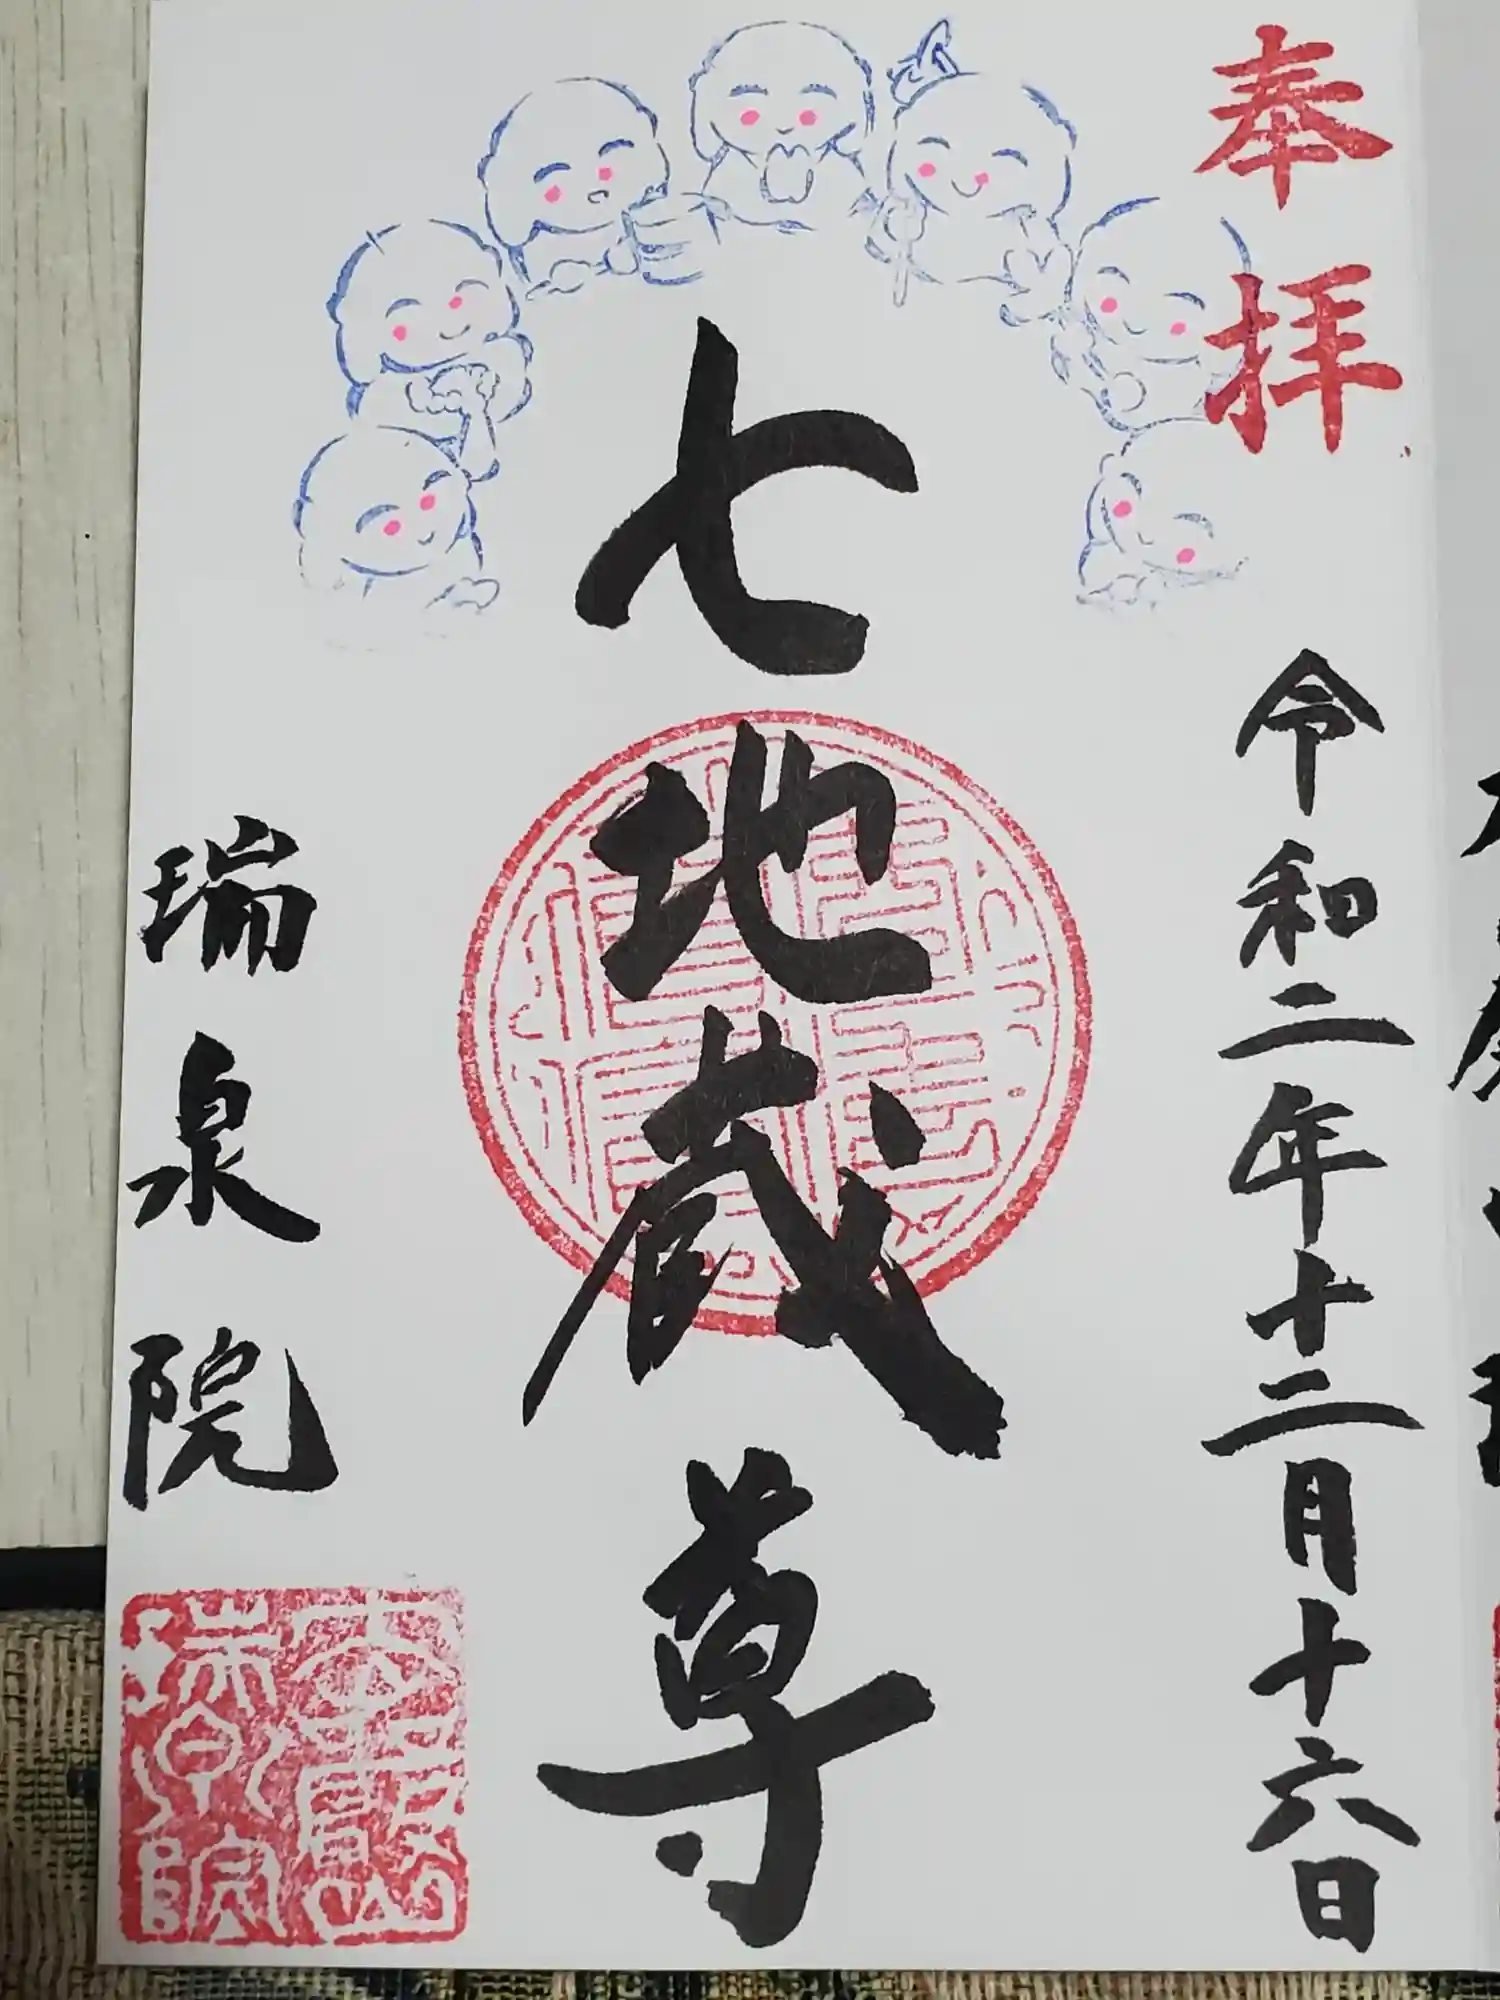 奉拝
令和二年十二月十六日
七地蔵尊
瑞泉院
瑞泉院